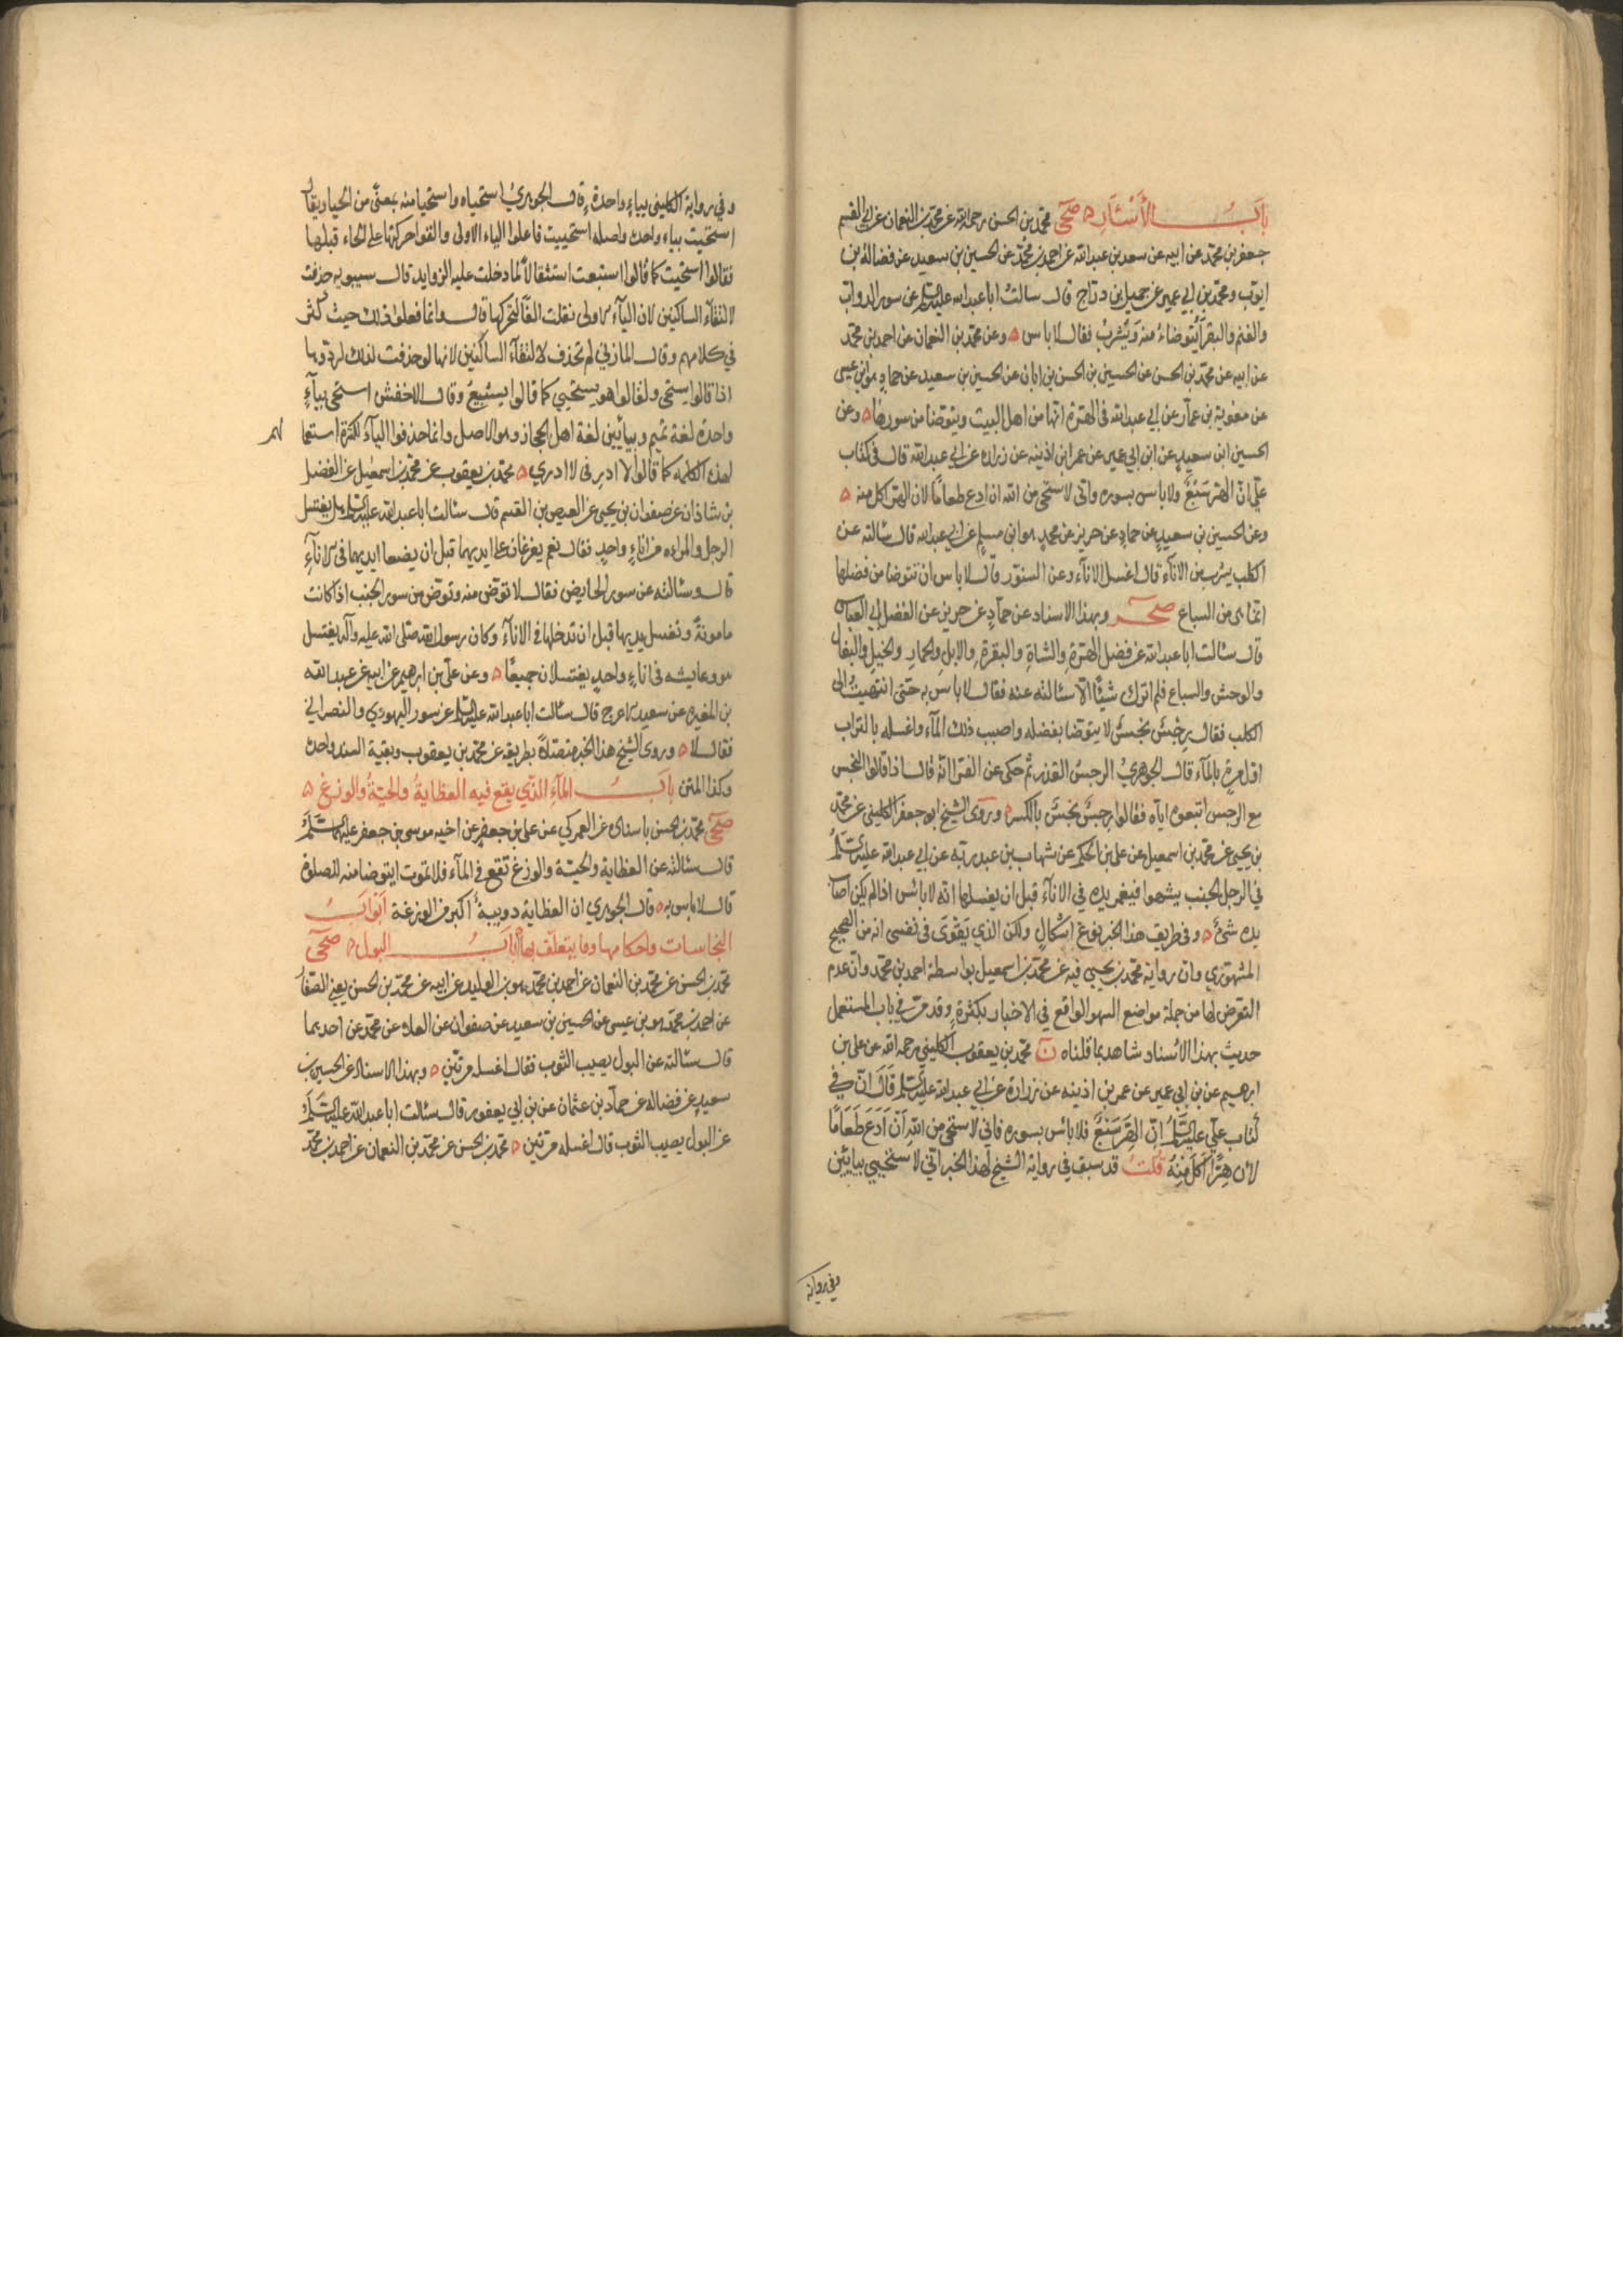 باب الأسئار ه صحي محمد بن الحسن رحمه الله عن محمد بن النعمان عن ابي القسم
جعفر بن محمد عن ابيه عن سعد بن عبد الله عن احمد بن محمد عن الحسين بن سعيد عن فضالة بن
ايوب ومحمد بن ابي عمير عن جميل بن دراج قال سالت ابا عبد الله عليه السلم عن سور الدواب
والغنم والبقر أيتوضاء منه ويشرب فقال لا باس ه وعن محمد بن النعمان عن احمد بن محمد
عن ابيه عن محمد بن الحسن عن الحسين بن الحسن بن ابان عن الحسين بن سعيد عن حماد هو ابن عيسى
عن معوية بن عمار عن ابي عبد الله في الهرة انها من اهل البيت ويتوضا من سورها ه وعن
الحسين ابن سعيد عن ابن ابي عمير عن عمر ابن اذينه عن زراره عن ابي عبد الله قال في كتاب
علي ان الهر سبع ولا باس بسوره واني لاستحي من الله ان ادع طعاما لان الهر اكل منه ه
وعن الحسين بن سعيد عن حماد عن حريز عن محمد هو ابن مسلم عن ابي عبد الله قال سالته عن
الكلب يشرب من الاناء قال اغسل الاناء وعن السنور قال لا باس ان تتوضا من فضلها
انما هي من السباع صحر وبهذا الاسناد عن حماد عن حريز عن الفضل ابي العباس
قال سئالت ابا عبد الله عن فضل الهرة والشاة والبقرة والابل والحمار والخيل والبغال
والوحش والسباع فلم اترك شيئا الا سئالته عنه فقال لا باس به حتى انتهيت الى
الكلب فقال رجس نجس لا يتوضا بفضله واصبب ذلك المآء واغسله بالتراب
اول مرة بالمآء قال الجوهري الرجس القذر ثم حكى عن الفرا انه قال اذا قالوا النجس
مع الرجس اتبعوه اياه فقالوا رجس نجس بالكسر ه وروى الشيخ ابو جعفر الكليني عن محمد
بن يحيى عن محمد بن اسمعيل عن علي بن الحكم عن شهاب بن عبد ربه عن ابي عبد الله عليه السلم
في الرجل الجنب يسهوا فيغمر يده في الاناء قبل ان يغسلها انه لا بائس اذا لم يكن اصاب
يده شئ ه وفي طريق هذا الخبر نوع اشكال ولكن الذي يقوى في نفسي انه من الصحيح
المشهوري وان رواية محمد بن يحيى فيه عن محمد بن اسمعيل بواسطة احمد بن محمد وان عدم
التعرض لها من جملة مواضع السهو الواقع في الاخبار بكثرة وقد مر في باب المستعمل
حديث بهذا الاسناد شاهد بما قلناه ن محمد بن يعقوب الكليني رحمه الله عن علي بن
ابرهيم عن بن ابي عمير عن عمر بن اذينه عن زرارة عن ابي عبد الله عليه السلم قال ان في
كتاب علي عليه السلم ان الهر سبع فلا بائس بسوره فاني لاستحي من الله أن أدع طعاما
لأن هرا أكل منه قلت قد سبق في رواية الشيخ لهذا الخبر اني لاستحيي بيائين
وفي رواية
وفي رواية الكليني بياء واحدة قال الجوهري استحياه واستحيا منه بمعنى من الحيا ويقال
استحيت بياء واحدة واصله استحييت فاعلوا الياء الاولى والقوا حركتها على الحاء قبلها
فقالوا استحيت كما قالوا استبعت استثقالا لما دخلت عليه الزوايد قال سيبويه حذفت
لالتقاء الساكنين لان الياء الاولى تقلب الفا لتحركها قال وانما فعلوا ذلك حيث كثر
في كلامهم وقال المازني لم تحذف لالتقاء الساكنين لانها لو حذفت لذلك لردوها
اذا قالوا يستحى ولقالوا هو يستحيي كما قالوا يستبيع وقال الاخفش استحى بياء
واحدة لغة تميم وبيائين لغة اهل الحجاز وهو الاصل وانما حذفوا الياء لكثرة استعما
لهم
لهذه الكلمه كما قالوا لا ادر في لا ادري ه محمد بن يعقوب عن محمد بن اسمعيل عن الفضل
بن شاذان عن صفوان بن يحيى عن العيص بن القسم قال سئالت ابا عبد الله عليه السلم هل يغتسل
الرجل والمراه من اناء واحد فقال نعم يفرغان على ايديهما قبل ان يضعا ايديهما في الاناء
قال وسئالته عن سور الحايض فقال لا توض منه وتوض من سور الجنب اذا كانت
مامونة وتغسل يديها قبل ان تدخلها في الاناء وكان رسول الله صلى الله عليه وآله يغتسل
هو وعايشه في اناء واحد يغتسلان جميعا ه وعن علي بن ابرهيم عن ابيه عن عبد الله
بن المغيره عن سعيد الاعرج قال سئالت ابا عبد الله عليه السلم عن سور اليهودي والنصراني
فقال لا ه وروى الشيخ هذا الخبر متصلا بطريقه عن محمد بن يعقوب وبقية السند واحدة
وكذا المتن باب المآء الذي يقع فيه العظاية والحية والوزغ ه
صحي محمد بن الحسن باسناده عن العمركي عن علي بن جعفر عن اخيه موسى بن جعفر عليهما السلم
قال سئالته عن العظاية والحية والوزغ تقع في المآء فلا تموت ايتوضا منه للصلوة
قال لا باس به ه قال الجوهري ان العظاية دويبة أكبر من الوزغة أبواب
النجاسات واحكامها وما يتعلق بها باب البول ه صحي
محمد بن الحسن عن محمد بن النعمان عن احمد بن محمد هو بن الوليد عن ابيه عن محمد بن الحسن يعني الصفار
عن احمد بن محمد هو بن عيسى عن الحسين بن سعيد عن صفوان عن العلاء عن محمد عن احدهما
قال سئالته عن البول يصيب الثوب فقال اغسله مرتين ه وبهذا الاسناد عن الحسين بن
سعيد عن فضاله عن حماد بن عثمان عن بن ابي يعفور قال سئالت ابا عبد الله عليه السلم
عن البول يصيب الثوب قال اغسله مرتين ه محمد بن الحسن عن محمد بن النعمان عن احمد بن محمد